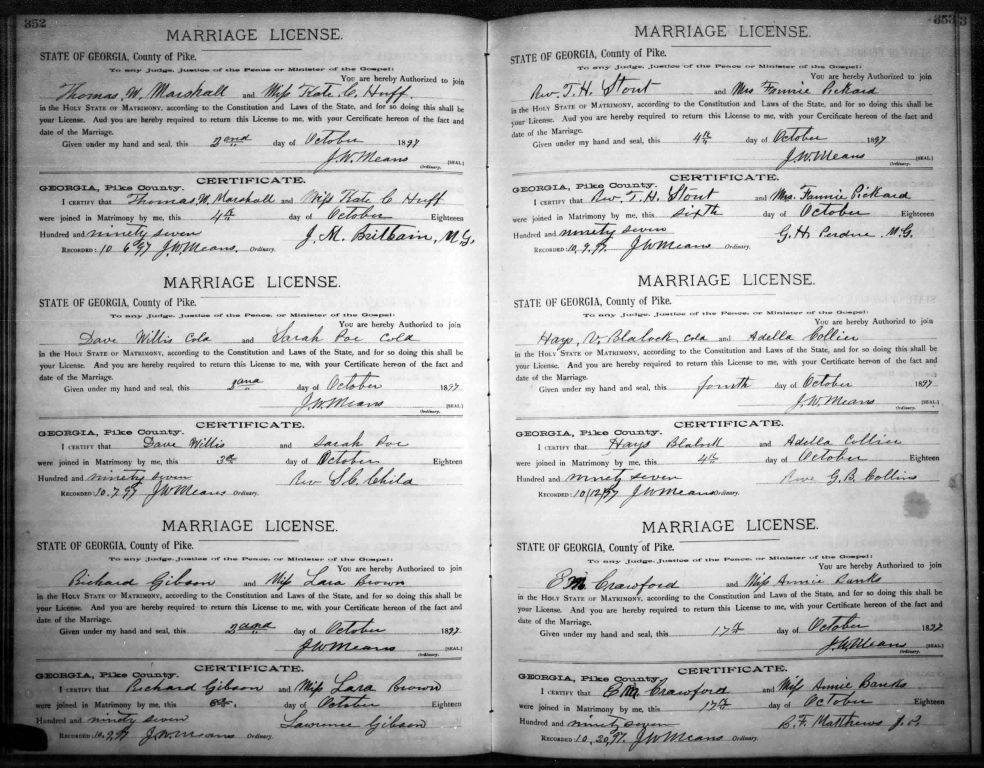 352
MARRIAGE LICENSE.
STATE OF GEORGIA, County of Pike.
To any Judge, Justice of the Peace or Minister of the Gospel:
You are hereby Authorized to join
Thomas W. Marshall and Miss Kate C. Huff
in the HOLY STATE OF MATRIMONY, according to the Constitution and Laws of the State, and for so doing this shall be
your License. And you are hereby required to return this License to me, with your Certificate hereon of the fact and
date of the Marriage.
Given under my hand and seal, this 2nd day of October 1897
J.W. Means [SEAL]
Ordinary.
CERTIFICATE.
GEORGIA, Pike County.
I CERTIFY that Thomas W. Marshall and Miss Kate C Huff
were joined in Matrimony by me, this 4th day of October Eighteen
Hundred and ninety seven J. M. Brittain, M.G.
RECORDED: 10 6/97 J.W. Means. Ordinary.
MARRIAGE LICENSE.
STATE OF GEORGIA, County of Pike.
To any Judge, Justice of the Peace, or Minister of the Gospel:
You are hereby Authorized to join
Dave Willis Cold and Sarah Poe Cold
in the HOLY STATE OF MATRIMONY, according to the Constitution and Laws of the State, and for so doing this shall be
your License. And you are hereby required to return this License to me, with your Certificate hereon of the fact and
date of the Marriage.
Given under my hand and seal, this day of October 1897
J.W. Means [SEAL]
Ordinary.
CERTIFICATE.
GEORGIA, Pike County.
I CERTIFY that Dave Willis and Sarah Poe
were joined in Matrimony by me, this 3rd day of October Eighteen
Hundred and ninety seven Rev S.C. Child
RECORDED: 10.7.97 J.W. Means Ordinary.
MARRIAGE LICENSE.
STATE OF GEORGIA, County of Pike.
To any Judge, Justice of the Peace, or Minister of the Gospel:
You are hereby Authorized to join
Richard Gibson and Miss Lara Brown
in the HOLY STATE OF MATRIMONY, according to the Constitution and Laws of the State, and for so doing this shall be
your License. And you are hereby required to return this License to me, with your Certificate hereon of the fact and
date of the Marriage.
Given under my hand and seal, this day of October 1897
J.W. Means [SEAL]
Ordinary.
CERTIFICATE.
GEORGIA, Pike County.
I CERTIFY that Richard Gibson and Miss Lara Brown
were joined in Matrimony by me, this day of October Eighteen
Hundred and ninety seven Lawrence Gibson
RECORDED: 10.9.97 J.W. Means Ordinary.
353
MARRIAGE LICENSE.
STATE OF GEORGIA, County of Pike.
To any Judge, Justice of the Peace or Minister of the Gospel:
You are hereby Authorized to join
Rev. T.H. Stout and Mrs Fannie Pickard
in the HOLY STATE OF MATRIMONY, according to the Constitution and Laws of the State, and for so doing this shall be
your License. And you are hereby required to return this License to me, with your Certificate hereon of the fact and
date of the Marriage.
Given under my hand and seal, this 4th day of October 1897
J.W. Means [SEAL]
Ordinary.
CERTIFICATE.
GEORGIA, Pike County.
I CERTIFY that Rev. T.H. Stout and Mrs. Fannie Pickard
were joined in Matrimony by me, this sixth day of October Eighteen
Hundred and ninety seven G.H. Perdue M.G.
RECORDED: 10.9.97. J W Means Ordinary.
MARRIAGE LICENSE.
STATE OF GEORGIA, County of Pike.
To any Judge, Justice of the Peace, or Minister of the Gospel:
You are hereby Authorized to join
Hays V. Blalock, Cold and Adella Collier
in the HOLY STATE OF MATRIMONY, according to the Constitution and Laws of the State, and for so doing this shall be
your License. And you are hereby required to return this License to me, with your Certificate hereon of the fact and
date of the Marriage.
Given under my hand and seal, this fourth day of October 1897
J.W. Means [SEAL]
Ordinary.
CERTIFICATE.
GEORGIA, Pike County.
I CERTIFY that Hays Blalock and Adella Collier
were joined in Matrimony by me, this 4th day of October Eighteen
Hundred and ninety seven Rev G.B. Collins
RECORDED: 10/12/97 J W Means Ordinary.
MARRIAGE LICENSE.
STATE OF GEORGIA, County of Pike.
To any Judge, Justice of the Peace, or Minister of the Gospel:
You are hereby Authorized to join
E M Crawford and Miss Annie Banks
in the HOLY STATE OF MATRIMONY, according to the Constitution and Laws of the State, and for so doing this shall be
your License. And you are hereby required to return this License to me, with your Certificate hereon of the fact and
date of the Marriage.
Given under my hand and seal, this 17th day of October 1897
J.W. Means [SEAL]
Ordinary.
CERTIFICATE.
GEORGIA, Pike County.
I CERTIFY that E M Crawford and Miss Annie Banks
were joined in Matrimony by me, this 17th day of October Eighteen
Hundred and ninety seven B.F. Matthews J.P.
RECORDED: 10.20.97. J W Means Ordinary.